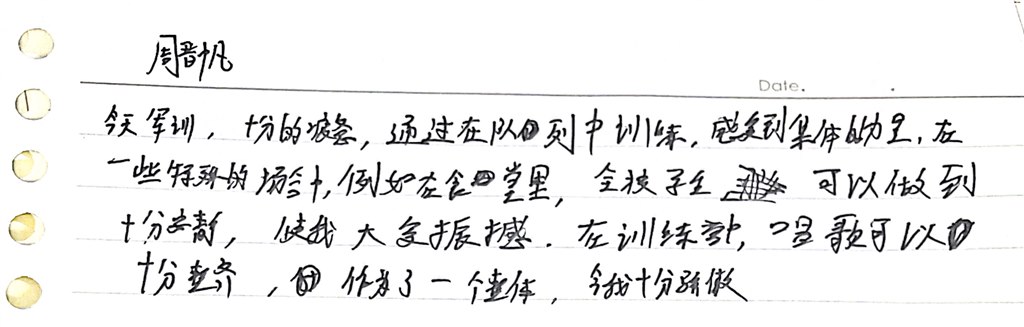 周晋帆
Date.
今天军训，十分的疲惫，通过在队列中训练，感受到集体的力量，在
一些特殊的场合中，例如在食堂里，全校学生 可以做到
十分安静，使我大受振撼．在训练中，唱歌可以
十分整齐，作为了一个整体，令我十分骄傲